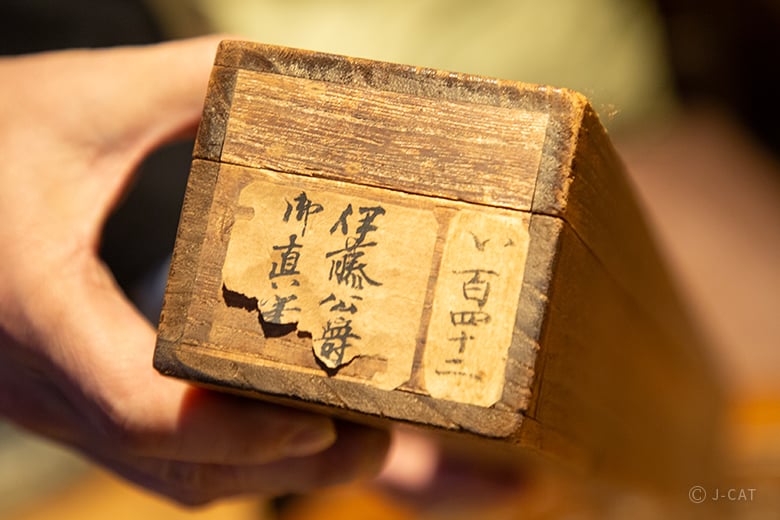 い百四十二
伊藤公爵
御真筆
© J-CAT